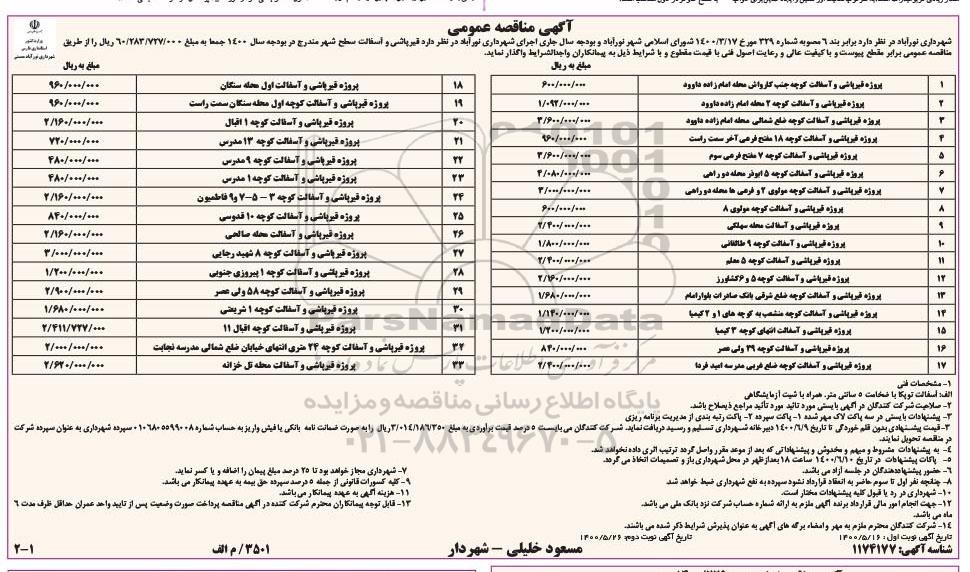 آگهی مناقصه عمومی
شهرداری نورآباد در نظر دارد برابر بند ۶ مصوبه شماره ۳۲۹ مورخ ۱۴۰۰/۳/۱۷ شورای اسلامی شهر نورآباد و بودجه سال جاری اجرای شهرداری نورآباد در نظر دارد قیرپاشی و آسفالت سطح شهر مندرج در بودجه سال ۱۴۰۰ جمعا به مبلغ ۶۰/۲۸۳/۷۲۷/۰۰۰ ریال را از طریق
مناقصه عمومی برابر مقطع پیوست و با کیفیت عالی و رعایت اصول فنی با قیمت مقطوع و با شرایط ذیل به پیمانکاران واجدالشرایط واگذار نماید.
وزارت کشور
استانداری فارس
شهرداری نورآباد ممسنی
مبلغ به ریال
۱ پروژه قیرپاشی و آسفالت کوچه جنب کارواش محله امام زاده داوود ۶۰۰/۰۰۰/۰۰۰
۲ پروژه قیرپاشی و آسفالت کوچه ۲ محله امام زاده داوود ۱/۰۹۲/۰۰۰/۰۰۰
۳ پروژه قیرپاشی و آسفالت کوچه ضلع شمالی محله امام زاده داوود ۳/۶۰۰/۰۰۰/۰۰۰
۴ پروژه قیرپاشی و آسفالت کوچه ۱۸ مفتح فرعی آخر سمت راست ۹۶۰/۰۰۰/۰۰۰
۵ پروژه قیرپاشی و آسفالت کوچه ۷ مفتح فرعی سوم ۳/۶۰۰/۰۰۰/۰۰۰
۶ پروژه قیرپاشی و آسفالت کوچه ۵ ابوذر محله دو راهی ۴/۰۸۰/۰۰۰/۰۰۰
۷ پروژه قیرپاشی و آسفالت کوچه مولوی ۲ و فرعی ها محله دو راهی ۳/۰۰۰/۰۰۰/۰۰۰
۸ پروژه قیرپاشی و آسفالت کوچه مولوی ۸ ۶۰۰/۰۰۰/۰۰۰
۹ پروژه قیرپاشی و آسفالت محله سهلکی ۲/۴۰۰/۰۰۰/۰۰۰
۱۰ پروژه قیرپاشی و آسفالت کوچه ۹ طالقانی ۱/۸۰۰/۰۰۰/۰۰۰
۱۱ پروژه قیرپاشی و آسفالت کوچه ۵ معلم ۲/۴۰۰/۰۰۰/۰۰۰
۱۲ پروژه قیرپاشی و آسفالت کوچه ۵ و ۶ کشاورز ۲/۱۶۰/۰۰۰/۰۰۰
۱۳ پروژه قیرپاشی و آسفالت کوچه ضلع شرقی بانک صادرات بلوارامام ۱/۶۸۰/۰۰۰/۰۰۰
۱۴ پروژه قیرپاشی و آسفالت کوچه منشعب به کوچه های ۱ و ۲ کیمیا ۱/۱۴۰/۰۰۰/۰۰۰
۱۵ پروژه قیرپاشی و آسفالت انتهای کوچه ۳ کیمیا ۱/۲۰۰/۰۰۰/۰۰۰
۱۶ پروژه قیرپاشی و آسفالت کوچه ۳۹ ولی عصر ۸۴۰/۰۰۰/۰۰۰
۱۷ پروژه قیرپاشی و آسفالت کوچه ضلع غربی مدرسه امید فردا ۲/۴۰۰/۰۰۰/۰۰۰
مبلغ به ریال
۱۸ پروژه قیرپاشی و آسفالت اول محله سنگان ۹۶۰/۰۰۰/۰۰۰
۱۹ پروژه قیرپاشی و آسفالت کوچه اول محله سنگان سمت راست ۹۶۰/۰۰۰/۰۰۰
۲۰ پروژه قیرپاشی و آسفالت کوچه ۱ اقبال ۲/۱۶۰/۰۰۰/۰۰۰
۲۱ پروژه قیرپاشی و آسفالت کوچه ۱۳ مدرس ۷۲۰/۰۰۰/۰۰۰
۲۲ پروژه قیرپاشی و آسفالت کوچه ۹ مدرس ۴۸۰/۰۰۰/۰۰۰
۲۳ پروژه قیرپاشی و آسفالت کوچه ۱ مدرس ۴۸۰/۰۰۰/۰۰۰
۲۴ پروژه قیرپاشی و آسفالت کوچه ۳ – ۵–۷ و۹ فاطمیون ۲/۱۶۰/۰۰۰/۰۰۰
۲۵ پروژه قیرپاشی و آسفالت کوچه ۱۰ قدوسی ۸۴۰/۰۰۰/۰۰۰
۲۶ پروژه قیرپاشی و آسفالت محله صالحی ۲/۱۶۰/۰۰۰/۰۰۰
۲۷ پروژه قیرپاشی و آسفالت کوچه ۸ شهید رجایی ۳/۰۰۰/۰۰۰/۰۰۰
۲۸ پروژه قیرپاشی و آسفالت کوچه ۱ پیروزی جنوبی ۱/۲۰۰/۰۰۰/۰۰۰
۲۹ پروژه قیرپاشی و آسفالت کوچه ۵۸ ولی عصر ۲/۹۰۰/۰۰۰/۰۰۰
۳۰ پروژه قیرپاشی و آسفالت کوچه ۱ شریعتی ۱/۶۸۰/۰۰۰/۰۰۰
۳۱ پروژه قیرپاشی و آسفالت کوچه اقبال ۱۱ ۲/۴۱۱/۷۲۷/۰۰۰
۳۲ پروژه قیرپاشی و آسفالت کوچه ۲۴ متری انتهای خیابان ضلع شمالی مدرسه نجابت ۲/۰۰۰/۰۰۰/۰۰۰
۳۳ پروژه قیرپاشی و آسفالت محله تل خزانه ۲/۶۲۰/۰۰۰/۰۰۰
ParsNamadData
مرکز فرآوری اطلاعات پارس نماد داده ها
پایگاه اطلاع رسانی مناقصه و مزایده
۰۲۱-۸۸۳۴۹۶۷۰-۵
۱– مشخصات فنی
الف: آسفالت توپکا با ضخامت ۵ سانتی متر. همراه با شیت آزمایشگاهی
۲– صلاحیت شرکت کنندگان در آگهی بایستی مورد تائید مورد تأئید مراجع ذیصلاح باشد.
۳– پیشنهادات بایستی در سه پاکت لاک مهر شده ۱– پاکت سپرده ۲– پاکت رتبه بندی از مدیریت برنامه ریزی
۳–قیمت پیشنهادی بدون قلم خوردگی تا تاریخ ۱۴۰۰/۶/۹ دبیرخانه شهرداری تسلیم و رسید دریافت نماید. شرکت کنندگان می بایست ۵ درصد قیمت برآوردی به مبلغ ۳/۰۱۴/۱۸۶/۳۵۰ ریال را به صورت ضمانت نامه بانکی یا فیش واریز به حساب شماره ۰۱۰۶۸۰۵۵۹۹۰۰۸ سپرده شهرداری به عنوان سپرده شرکت
در مناقصه تحویل نمایند.
۴– به پیشنهادات مشروط و مبهم و مخدوش و پیشنهاداتی که بعد از موعد مقرر واصل گردد ترتیب اثری داده نخواهد شد.
۵– پاکات پیشنهادات در تاریخ ۱۴۰۰/۶/۱۰ ساعت ۱۸ بعدازظهر در محل شهرداری باز و تصمیمات اتخاذ می گردد.
۶– حضور پیشنهاددهندگان در جلسه آزاد می باشد.
۷– شهرداری مجاز خواهد بود تا ۲۵ درصد مبلغ پیمان را اضافه و یا کسر نماید.
۸– چنانچه نفر اول تا سوم حاضر به انعقاد قرارداد نشود سپرده به نفع شهرداری ضبط خواهد شد.
۹– کلیه کسورات قانونی از جمله ۵ درصد سپرده حق بیمه به عهده پیمانکار می باشد.
۱۰– شهرداری در رد یا قبول کلیه پیشنهادات مختار است.
۱۱– هزینه آگهی به عهده پیمانکار می باشد.
۱۲– جهت انجام امور مالی قرارداد برنده آگهی ملزم به ارائه شماره حساب شرکت نزد بانک ملی می باشد.
۱۳– قابل توجه پیمانکاران محترم شرکت کننده در آگهی مناقصه پرداخت صورت وضعیت پس از تایید واحد عمران حداقل ظرف مدت ۶
ماه می باشد.
۱۴– شرکت کنندگان محترم ملزم به مهر و امضاء برگه های آگهی به عنوان پذیرش شرایط ذکر شده می باشند.
تاریخ آگهی نوبت اول : ۱۴۰۰/۵/۱۶ تاریخ آگهی نوبت دوم: ۱۴۰۰/۵/۲۶
شناسه آگهی: ۱۱۷۴۱۷۷ مسعود خلیلی – شهردار ۳۵۰۱ / م الف ۲–۱